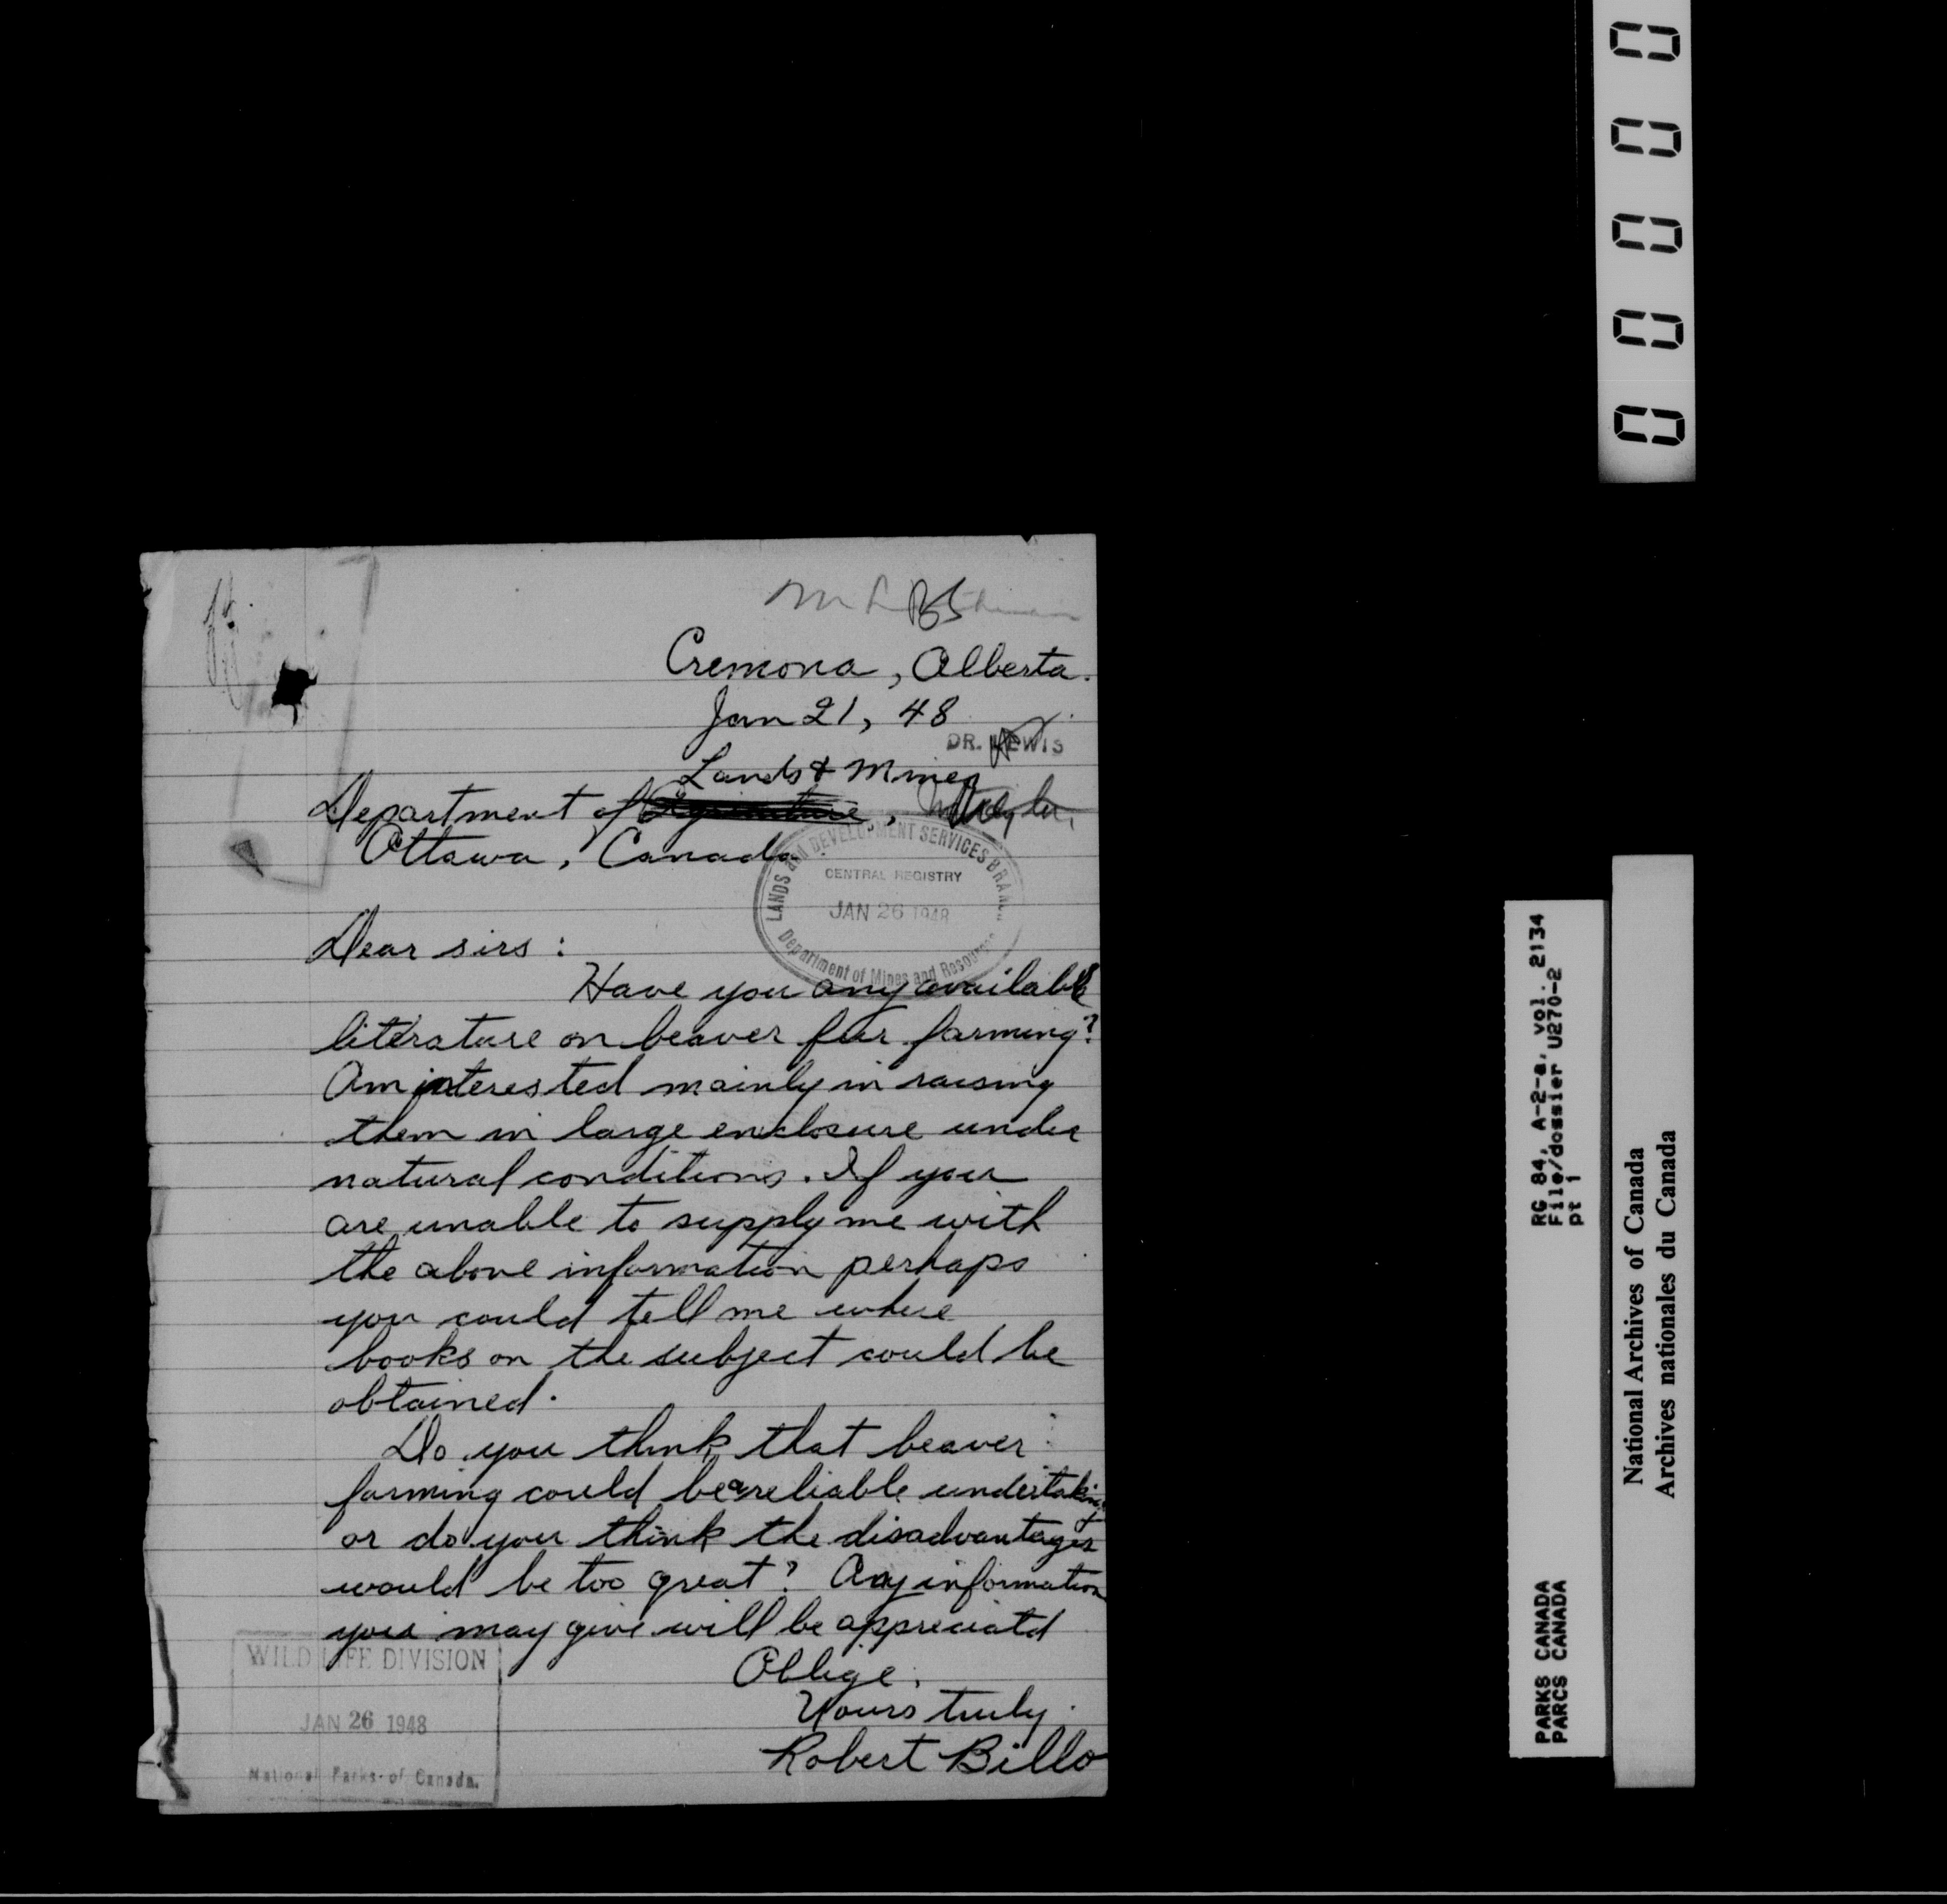 Cremona, Alberta.
Jan 21, 48
DR. LEWIS
Lands & Mines
Department of Agriculture,
Ottawa, Canada.
LANDS and DEVELOPMENT SERVICES BRANCH
CENTRAL REGISTRY
JAN 26 1948
Department of Mines and Resources
Dear sirs :
Have you any available
literature on beaver fur farming?
Am interested mainly in raising
them in large enclosure under
natural conditions. If you
are unable to supply me with
the above information perhaps
you could tell me where
books on the subject could be
obtained.
Do you think that beaver
farming could be a reliable undertaking
or do you think the disadvantages
would be too great? Any information
you may give will be appreciatd
Oblige,
Yours truly
Robert Billo
WILD LIFE DIVISION
JAN 26 1948
National Parks of Canada.
00000
RG 84, A-2-a, vol. 2134
File/dossier U270-2
pt 1
PARKS CANADA
PARCS CANADA
National Archives of Canada
Archives nationales du Canada